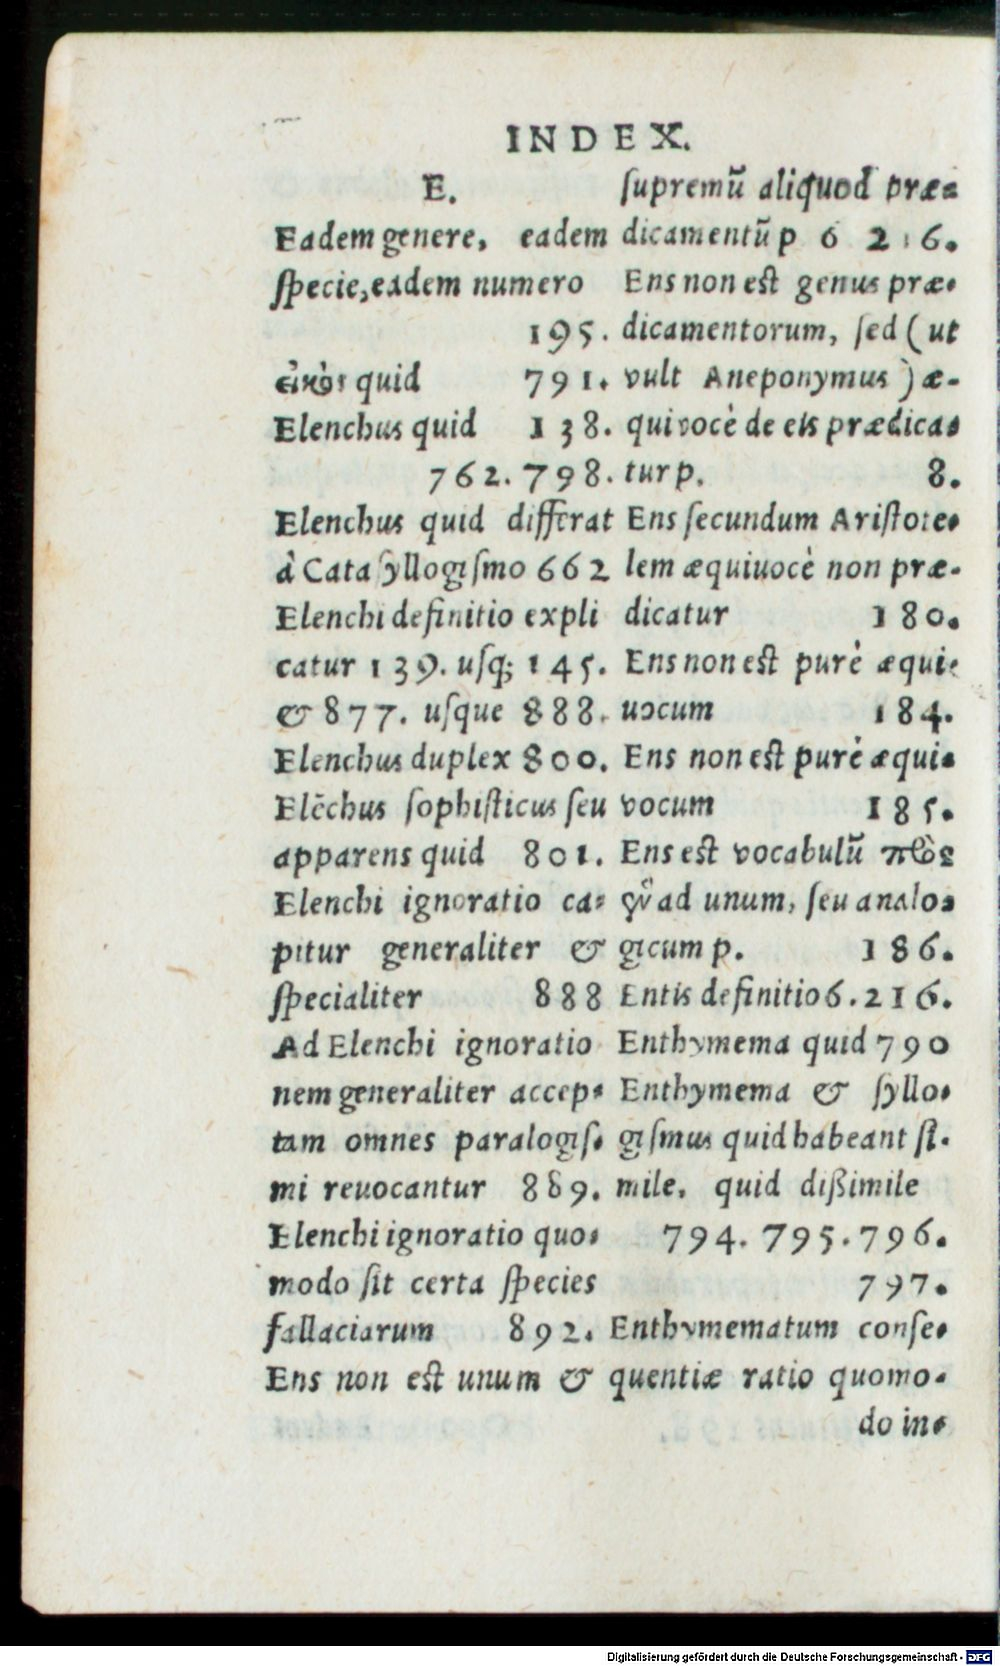 INDEX.
E.
Eadem genere, eadem
ſpecie, eadem numero
195.
εἰκὸς quid 791.
Elenchus quid 138.
762. 798.
Elenchus quid differat
à Cataſyllogiſmo 662
Elenchi definitio expli
catur 139. uſq; 145.
& 877. uſque 888.
Elenchus duplex 800.
Elēchus ſophiſticus ſeu
apparens quid 801.
Elenchi ignoratio ca-
pitur generaliter &
ſpecialiter 888
Ad Elenchi ignoratio
nem generaliter accep-
tam omnes paralogiſ-
mi reuocantur 889.
Elenchi ignoratio quo-
modo ſit certa ſpecies
fallaciarum 892.
Ens non est unum &
ſupremũ aliquod præ-
dicamentũ p 6 216.
Ens non est genus præ-
dicamentorum, ſed (ut
vult Aneponymus) æ-
quivocè de eis prædica-
tur p. 8.
Ens ſecundum Ariſtote-
lem æquiuocè non præ-
dicatur 180.
Ens non est purè æqui-
uocum 184.
Ens non est purè æqui-
vocum 185.
Ens est vocabulũ πρὸς
ἓν ad unum, ſeu analo-
gicum p. 186.
Entis definitio 6. 216.
Enthymema quid 790
Enthymema & ſyllo-
giſmus quid habeant ſi-
mile, quid dißimile
794. 795. 796.
797.
Enthymematum conſe-
quentiæ ratio quomo-
do in-
Digitalisierung gefördert durch die Deutsche Forschungsgemeinschaft - DFG